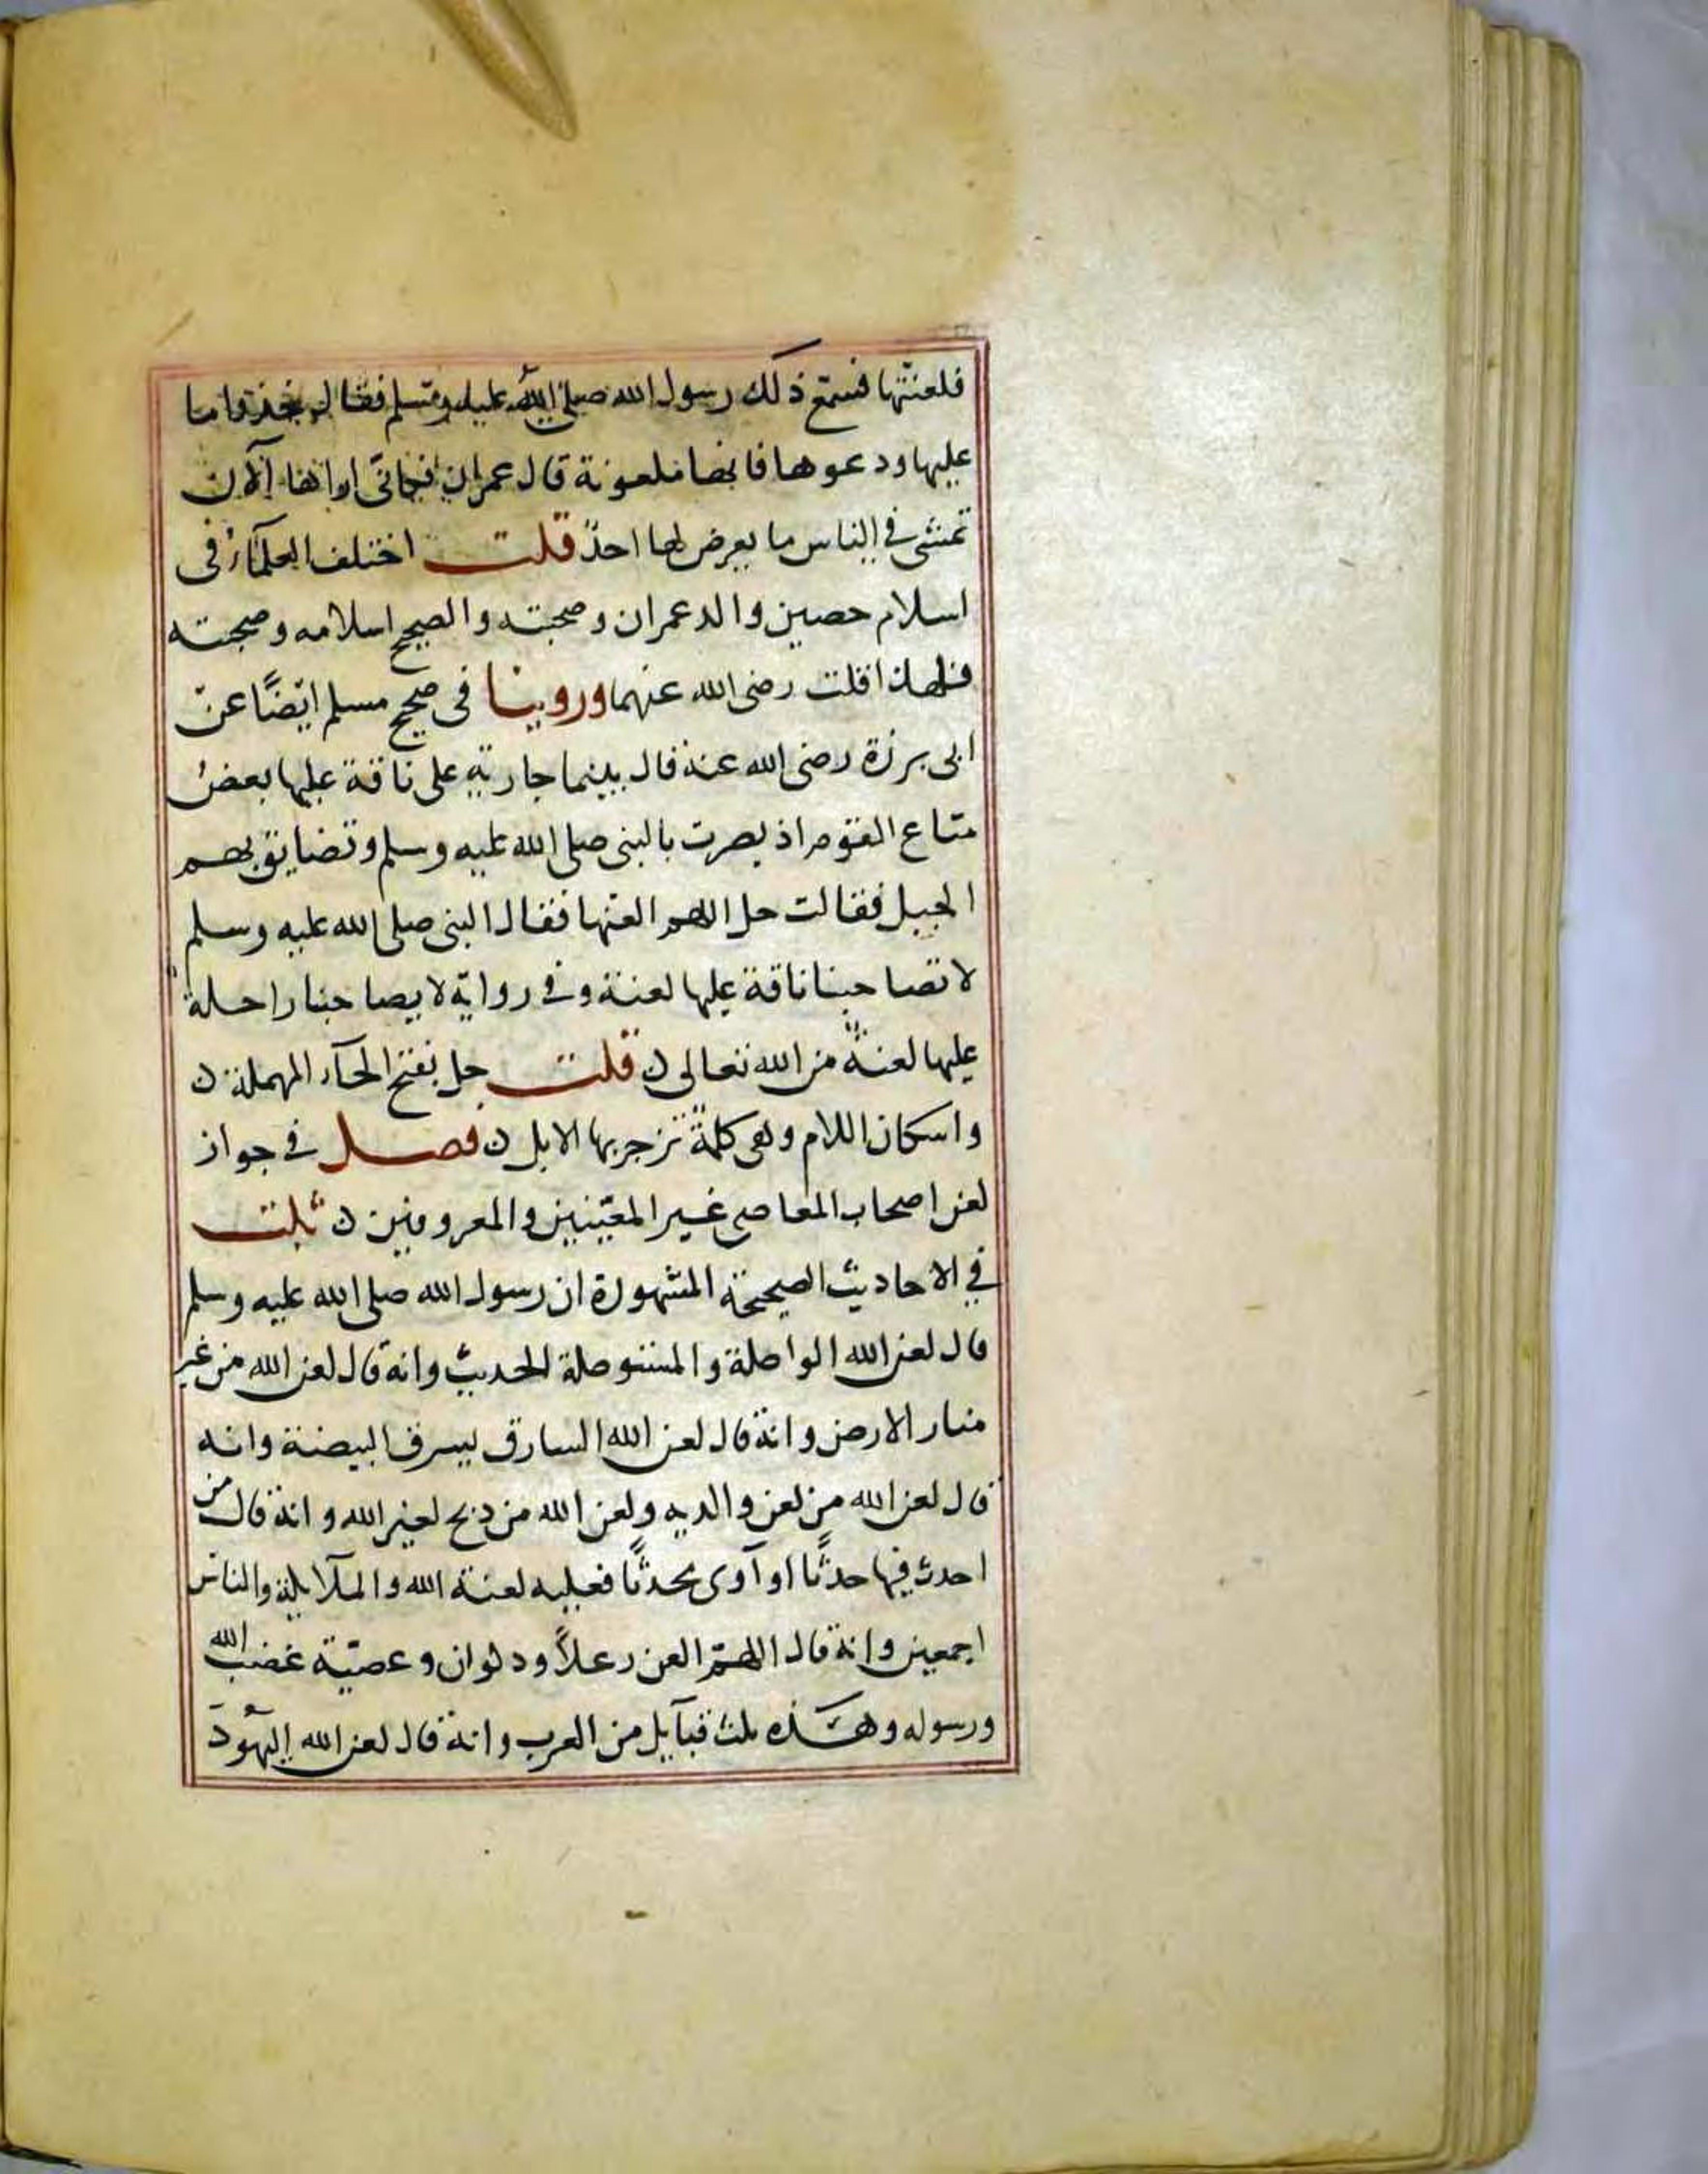 فلعنتها فسمع ذلك رسول الله صلى الله عليه وسلم فقال خذوا ما
عليها ودعوها فانها ملعونة قال عمران فكاني اراها الآن
تمشي في الناس ما يعرض لها احدٌ قلت اختلف العلمآءُ في
اسلام حصين والد عمران وصحبته والصحيح اسلامه وصحبته
فلهذا قلت رضى الله عنهما وروينا في صحيح مسلم ايضًا عن
ابى برزة رضى الله عنه قال بينما جارية على ناقة عليها بعضُ
متاع القوم اذ بصرت بالنبى صلى الله عليه وسلم وتضايق بهم
الجبل فقالت حل اللهم العنها فقال النبى صلى الله عليه وسلم
لا تصاحبنا ناقة عليها لعنة وفي رواية لا يصاحبنا راحلة
عليها لعنةٌ من الله تعالى ن قلت حل بفتح الحآء المهملة ن
واسكان اللام وهى كلمةٌ تزجر بها الابل ن فصل في جواز
لعن اصحاب المعاصي غير المعيّنين والمعروفين ن ثبت
في الاحاديث الصحيحة المشهورة ان رسول الله صلى الله عليه وسلم
قال لعن الله الواصلة والمستوصلة الحديث وانه قال لعن الله من غير
منار الارض وانه قال لعن الله السارق يسرق البيضة وانه
قال لعن الله من لعن والديه ولعن الله من ذبح لغير الله وانه قال من
احدث فيها حدثًا او آوى محدثًا فعليه لعنة الله والملآئكة والناس
اجمعين وانه قال اللهمّ العن رعلاً وذكوان وعصيّة غضب الله
ورسوله وهذه ثلث قبآيل من العرب وانه قال لعن الله اليهودَ